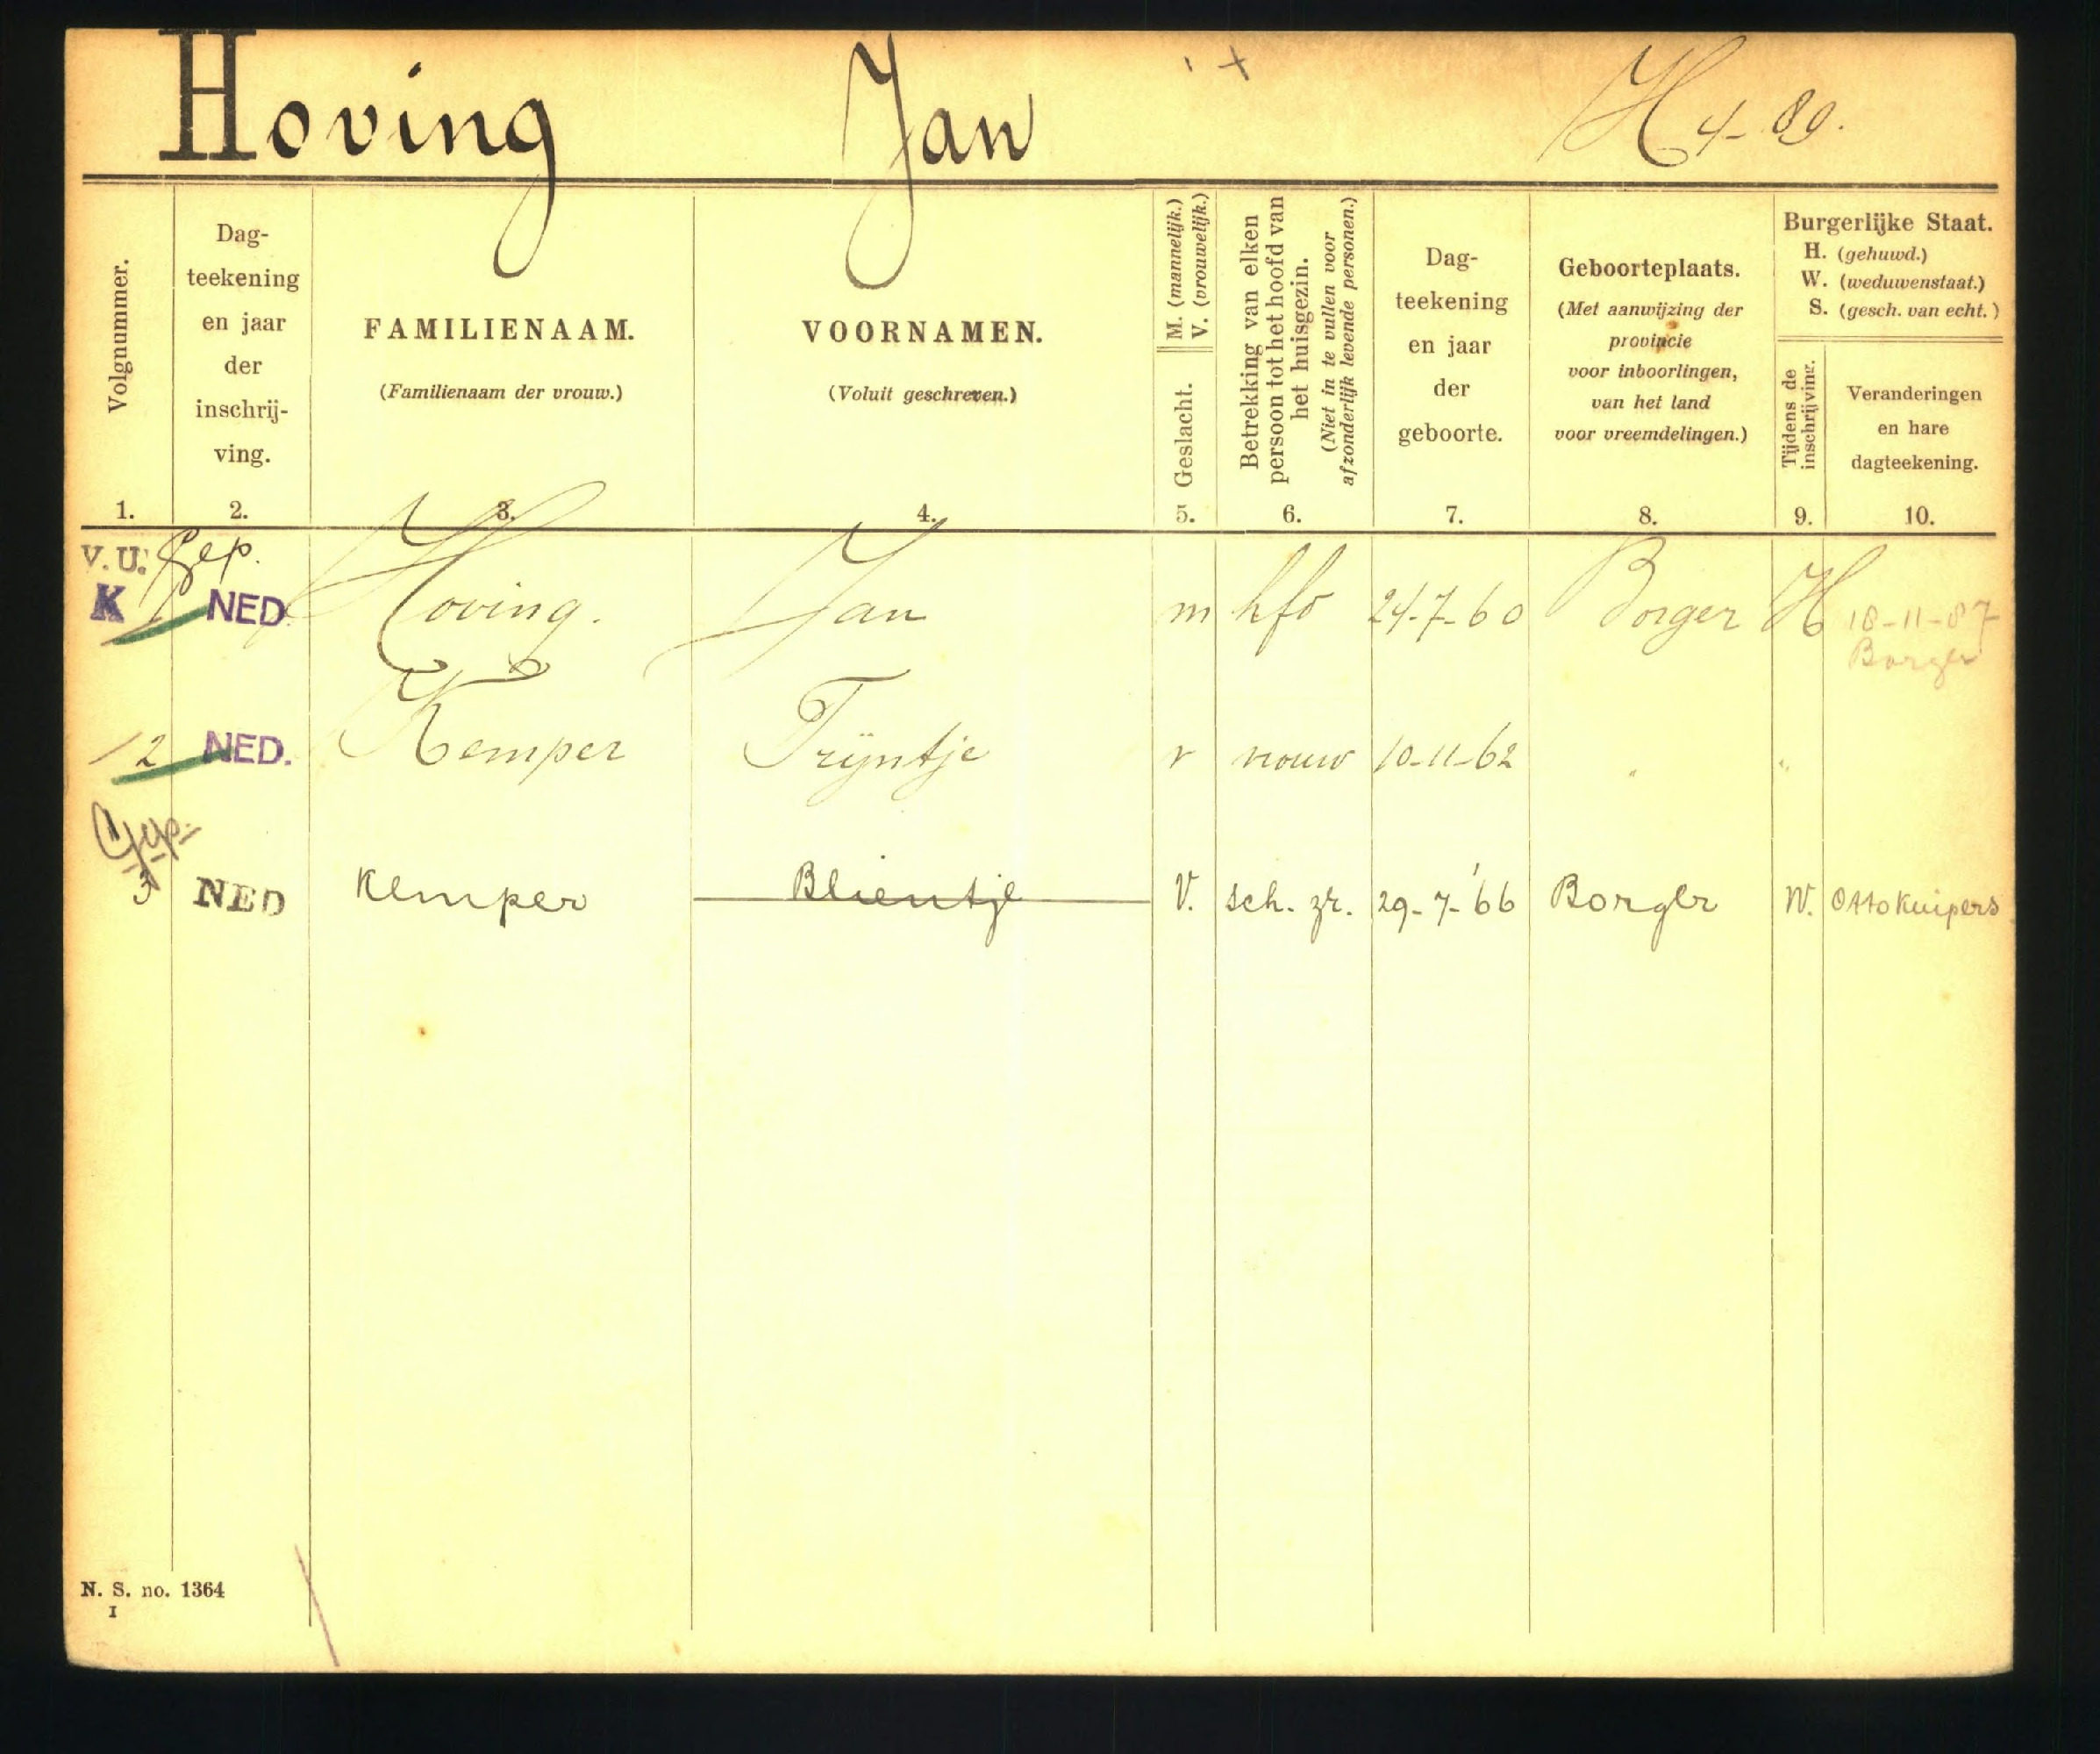 Hoving Jan H 4-89.
Volgnummer.
Dag-
teekening
en jaar
der
inschrij-
ving.
FAMILIENAAM.
(Familienaam der vrouw.)
VOORNAMEN.
(Voluit geschreven.)
M. (mannelijk.)
V. (vrouwelijk.)
Geslacht.
Betrekking van elken
persoon tot het hoofd van
het huisgezin.
(Niet in te vullen voor
afzonderlijk levende personen.)
Dag-
teekening
en jaar
der
geboorte.
Geboorteplaats.
(Met aanwijzing der
provincie
voor inboorlingen,
van het land
voor vreemdelingen.)
Burgerlijke Staat.
H. (gehuwd.)
W. (weduwenstaat.)
S. (gesch. van echt.)
Tijdens de
inschrijving.
Veranderingen
en hare
dagteekening.
1. 2. 3. 4. 5. 6. 7. 8. 9. 10.
V.U. Gep.
K 1 NED. Hoving. Jan m hfd 24-7-60 Borger H 18-11-87
Borger
2 NED. Kemper Trijntje v vrouw 10-11-62 " "
Gep.
3 NED Kemper Blientje V. sch. zr. 29-7-'66 Borger W. Otto Kuipers
N. S. no. 1364
I